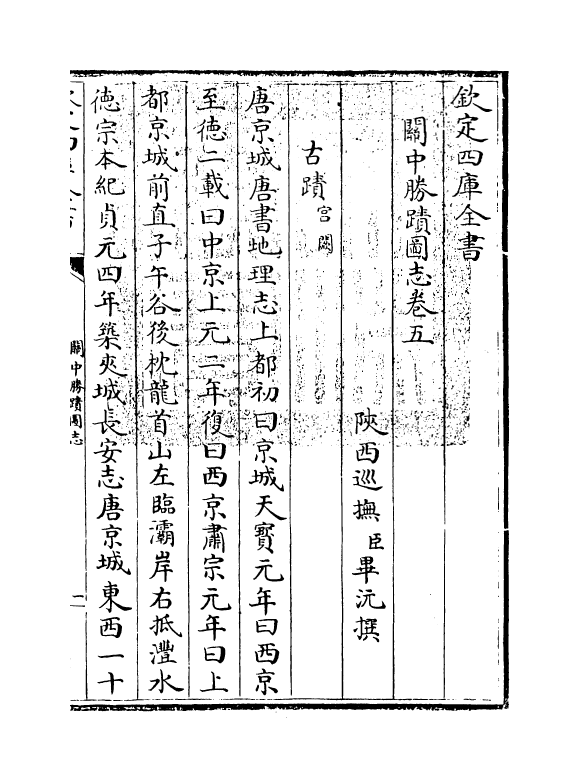 欽定四庫全書
關中勝蹟圖志卷五
陝西巡撫臣畢沅撰
古蹟宮闕
唐京城唐書地理志上都初曰京城天寳元年曰西京
至徳二載曰中京上元二年復曰西京肅宗元年曰上
都京城前直子午谷後枕龍首山左臨灞岸右抵灃水
徳宗本紀貞元四年築夾城長安志唐京城東西一十
關中勝蹟圖志